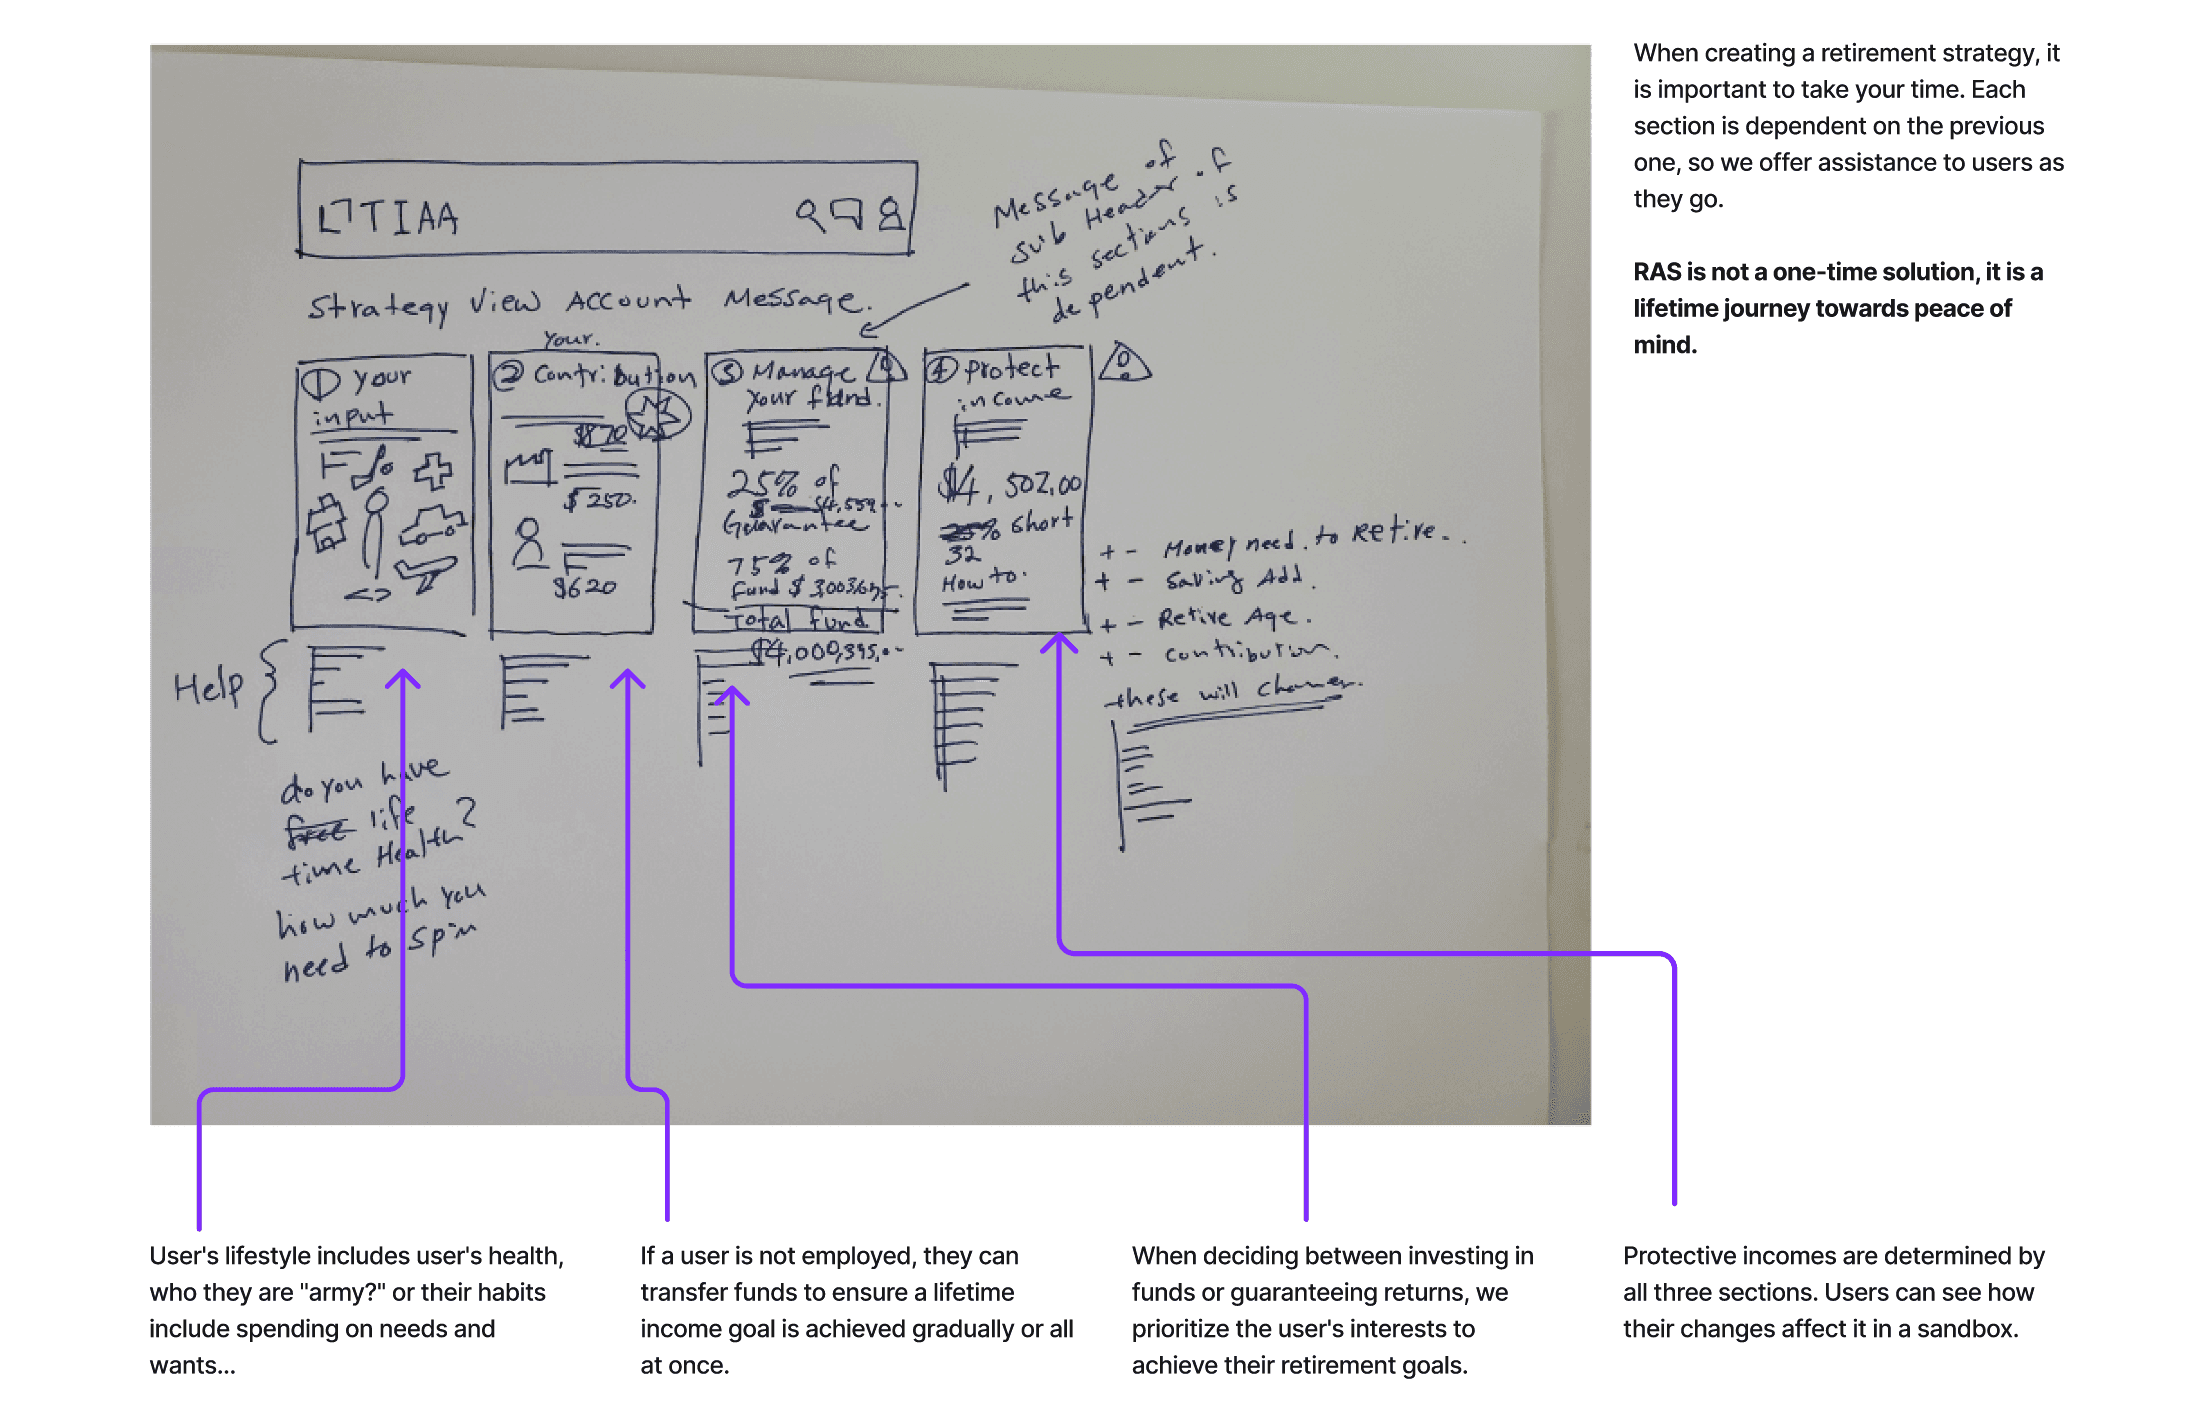 When creating a retirement strategy, it
is important to take your time. Each
section is dependent on the previous
one, so we offer assistance to users as
they go.
RAS is not a one-time solution, it is a
lifetime journey towards peace of
mind.
TIAA
Message of
sub Header of
this sections is
dependent.
Strategy View Account Message.
1 Your
input
Your.
2 Contribution
$870
$250.
$620
3 Manage
Your fund.
25% of
$4,559
Guarantee
75% of
Fund $
Total Fund
$4,000,395,.--
4 Protect
income
$4,502.00
Short
32
How to.
+ - Money need to Retire..
+ - Saving Add.
+ - Retire Age.
+ - Contribution.
these will
Help
do you have
life
time Health?
how much you
need to spin
User's lifestyle includes user's health,
who they are "army?" or their habits
include spending on needs and
wants...
If a user is not employed, they can
transfer funds to ensure a lifetime
income goal is achieved gradually or all
at once.
When deciding between investing in
funds or guaranteeing returns, we
prioritize the user's interests to
achieve their retirement goals.
Protective incomes are determined by
all three sections. Users can see how
their changes affect it in a sandbox.